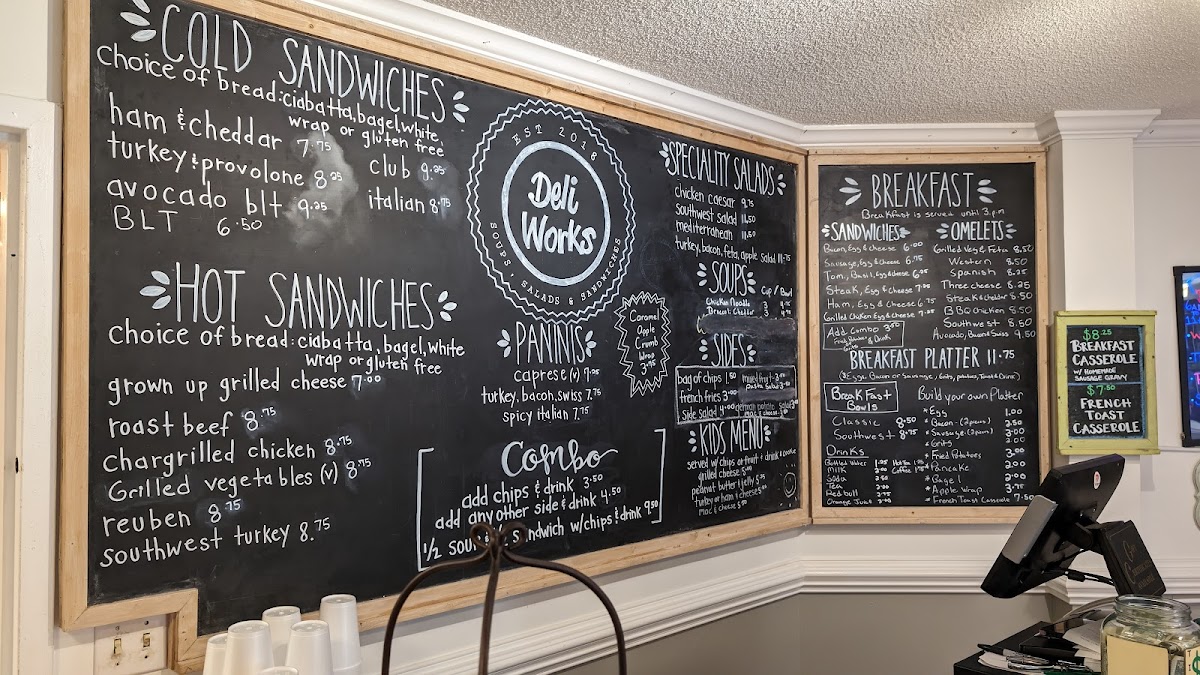 COLD SANDWICHES
choice of bread: ciabatta, bagel, white,
wrap or gluten free
ham & cheddar 7.75
turkey & provolone 8.25
avocado blt 9.25
BLT 6.50
club 9.25
italian 8.75
HOT SANDWICHES
choice of bread: ciabatta, bagel, white
wrap or gluten free
grown up grilled cheese 7.00
roast beef 8.75
chargrilled chicken 8.75
Grilled vegetables (v) 8.75
reuben 8.75
southwest turkey 8.75
EST 2018
Deli
Works
SOUPS, SALADS & SANDWICHES
PANINIS
caprese (v) 7.95
turkey, bacon, swiss 7.75
spicy italian 7.75
Caramel
Apple
Crumb
Wrap
3.75
Combo
add chips & drink 3.50
add any other side & drink 4.50
1/2 sandwich w/chips & drink 9.50
SPECIALITY SALADS
chicken caesar 9.75
southwest salad 11.50
mediterranean 11.50
turkey, bacon, feta, apple salad 11.75
SOUPS
Cup / Bowl
Chicken Noodle
Broccoli Cheddar
SIDES
bag of chips 1.50
mixed fruit
pasta salad
french fries 3.00
side salad 4.00
KIDS MENU
served w/ chips or fruit & drink & cookie
grilled cheese 5.00
peanut butter & jelly
turkey or ham & cheese
mac & cheese
BREAKFAST
Breakfast is served until 3 p.m
SANDWICHES
Bacon, Egg & cheese 6.00
Sausage, Egg & cheese 6.75
Tom, Basil, Egg & cheese
Steak, Egg & cheese
Ham, Egg & cheese 6.75
Grilled chicken Egg & cheese
Add Combo 3.50
OMELETS
Grilled Veg & Feta 8.50
Western 8.50
Spanish 8.25
Three cheese 8.25
Steak & cheddar 8.50
BBQ chicken 8.50
Southwest 8.50
Avocado, Bacon & Swiss 9.50
BREAKFAST PLATTER 11.75
(Eggs, Bacon or Sausage, Grits, potatoes, Toast & Drink)
Breakfast
Bowls
Classic 8.50
Southwest 8.75
Drinks
Bottled Water
Milk
Soda
Tea
Red bull
Orange Juice
Build your own Platter
* Egg 1.00
* Bacon (2 pieces) 2.50
* Sausage (2 pieces)
* Grits
* Fried Potatoes
* Pancake
* Bagel
* Apple Wrap
* French Toast Casserole 7.50
$8.25
BREAKFAST
CASSEROLE
W/ HOMEMADE
SAUSAGE GRAVY
$7.50
FRENCH
TOAST
CASSEROLE